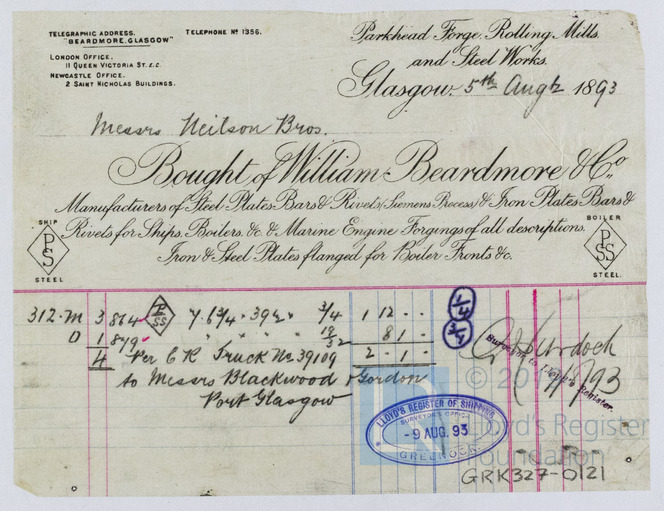 TELEGRAPHIC ADDRESS.
"BEARDMORE, GLASGOW"
TELEPHONE Nº 1356.
LONDON OFFICE.
11 QUEEN VICTORIA ST. E.C.
NEWCASTLE OFFICE.
2 SAINT NICHOLAS BUILDINGS.
Parkhead Forge, Rolling Mills,
and Steel Works.
Glasgow, 5th Augt 1893
Messrs Neilson Bros.
Bought of William Beardmore & Co.
Manufacturers of Steel Plates Bars & Rivets (Siemens Process) & Iron Plates Bars &
Rivets for Ships, Boilers, &c. & Marine Engine Forgings of all descriptions.
Iron & Steel Plates flanged for Boiler Fronts &c.
SHIP
PSS
STEEL
BOILER
PSS
STEEL.
312.M 3 864 PSS 7.6 3/4 . 39 1/2 " 3/4 1 12 . . 1/4
D 1 879 " " " " 19/32 . 8 1 . . 3/4
4 Per C R Truck No 39109 2 . 1 . .
to Messrs Blackwood & Gordon
Port Glasgow
Murdoch
Surveyor to Lloyd's Register.
LLOYD'S REGISTER OF SHIPPING
SURVEYOR'S OFFICE
- 9 AUG. 93
GREENOCK
Lloyd's Register
Foundation
GRK327-0121